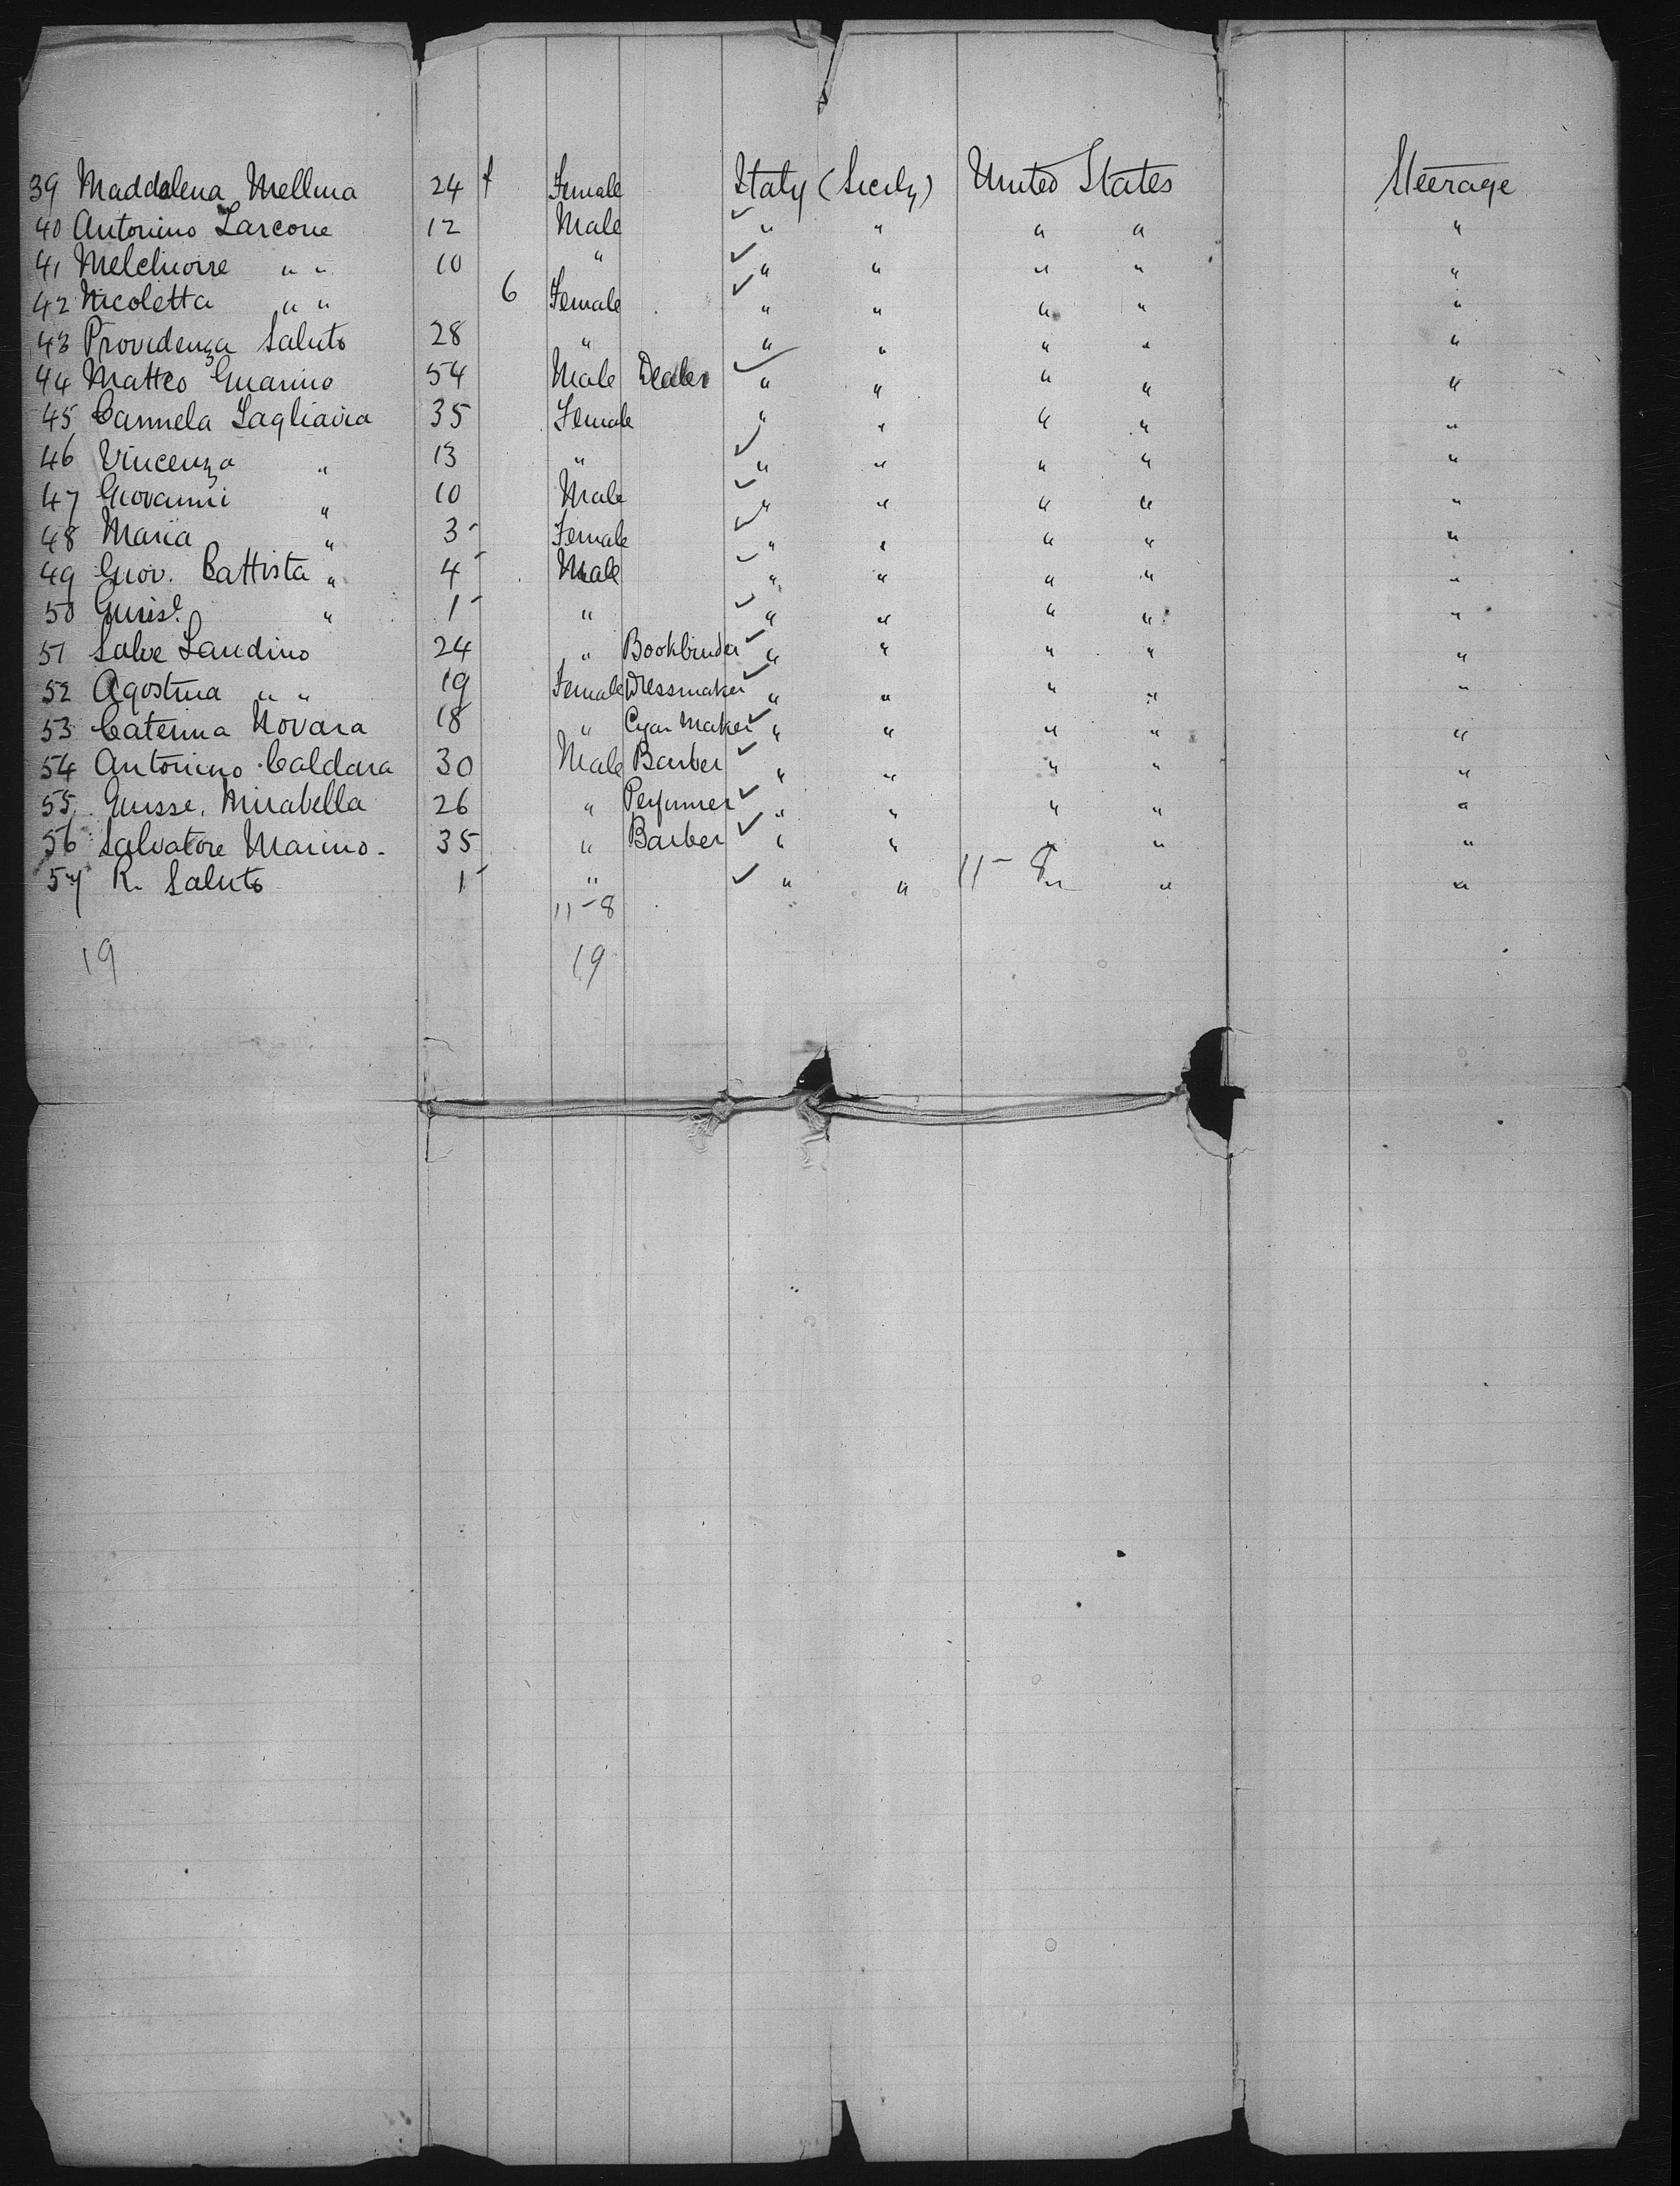 39 Maddalena Mellina 24 f Female Italy (Sicily) United States Steerage
40 Antonino Larcone 12 Male " " " " "
41 Melchiorre " " 10 " " " " " "
42 Nicoletta " " 6 Female " " " " "
43 Providenza Saluto 28 " " " " " "
44 Matteo Guarino 54 Male Dealer " " " " "
45 Carmela Tagliavia 35 Female " " " " "
46 Vincenza " 13 " " " " " "
47 Giovanni " 10 Male " " " " "
48 Maria " 3 Female " " " " "
49 Giov. Battista " 4 Male " " " " "
50 " 1 " " " " " "
51 Salve Landino 24 " Bookbinder " " " " "
52 Agostina " " 19 Female Dressmaker " " " " "
53 Caterina Novara 18 " Cigar Maker " " " " "
54 Antonino Caldara 30 Male Barber " " " " "
55. Giusse. Mirabella 26 " Perfumer " " " " "
56 Salvatore Marino - 35 " Barber " " " " "
57 R. Saluto 1 " " " 11-8 " "
11-8
19 19